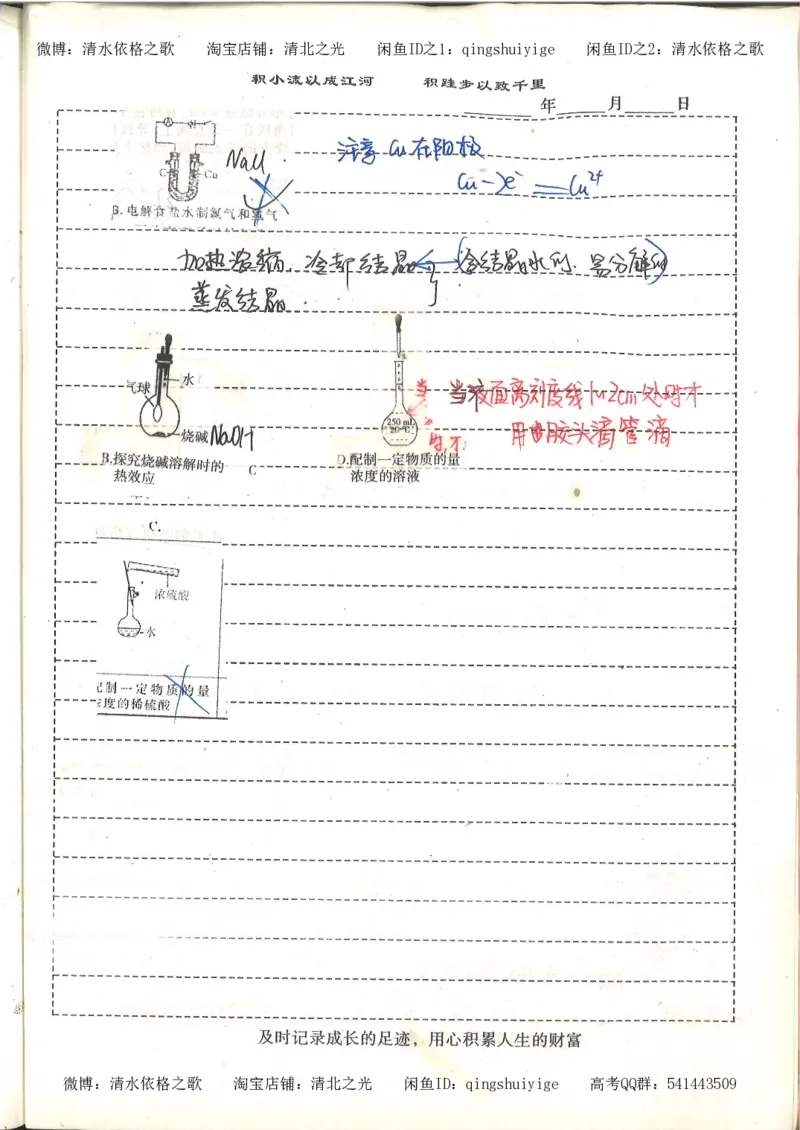 微博：清水依格之歌 淘宝店铺：清北之光 闲鱼ID之1：qingshuiyige 闲鱼ID之2：清水依格之歌
积小流以成江河 积跬步以致千里
年 月 日
A
C Cu
NaCl.
注意 Cu在阳极
Cu-2e⁻=Cu²⁺
B.电解食盐水制氯气和氢气
加热浓缩、冷却结晶 (含结晶水的、易分解的)
蒸发结晶.
气球
水
烧碱 NaOH
250 mL
20℃
当
当液面离刻度线1~2cm处时才
用胶头滴管滴
时,才
B.探究烧碱溶解时的
热效应
C
D.配制一定物质的量
浓度的溶液
C.
浓硫酸
水
配制一定物质的量
浓度的稀硫酸
及时记录成长的足迹，用心积累人生的财富
微博：清水依格之歌 淘宝店铺：清北之光 闲鱼ID：qingshuiyige 高考QQ群：541443509